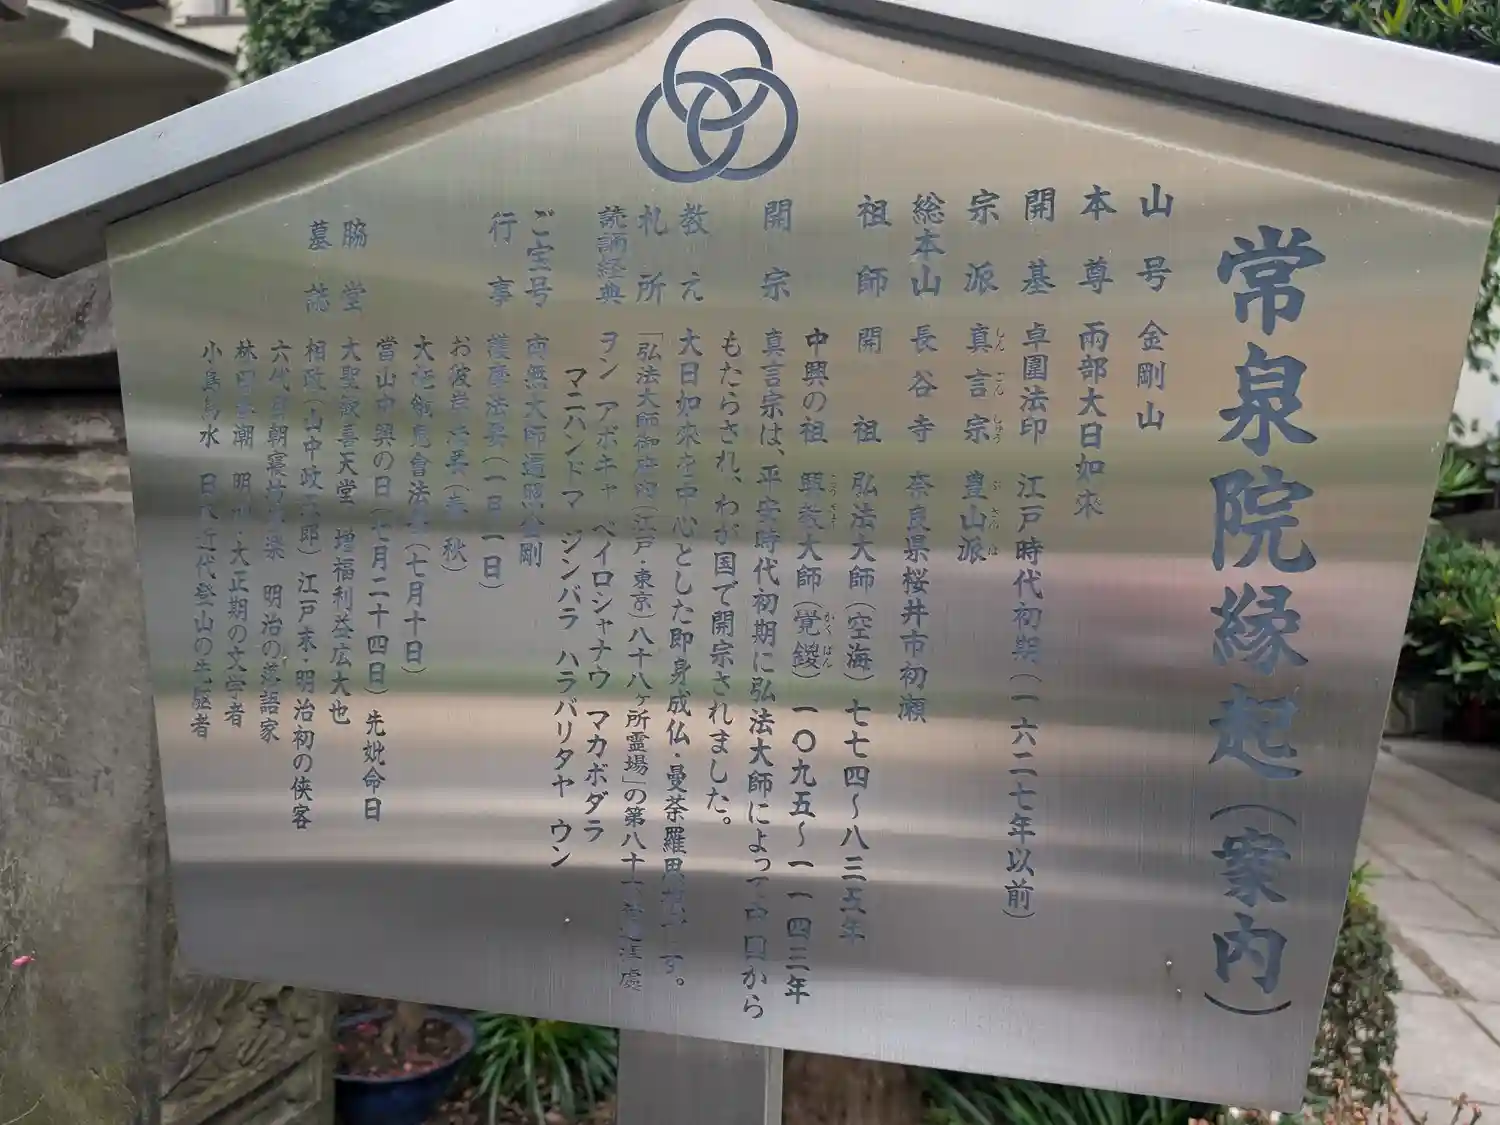 常泉院縁起(案内)
山号 金剛山
本尊 両部大日如来
開基 卓圍法印 江戸時代初期(一六二七年以前)
宗派 真言宗 豊山派
しんごんしゅう ぶざんは
総本山 長谷寺 奈良県桜井市初瀬
祖師 開祖 弘法大師(空海)七七四〜八三五年
中興の祖 興教大師(覚鑁)一〇九五〜一一四三年
こうぎょう かくばん
開宗 真言宗は、平安時代初期に弘法大師によって中国から
もたらされ、わが国で開宗されました。
教え 大日如来を中心とした即身成仏・曼荼羅思想です。
札所 「弘法大師御府内(江戸・東京)八十八ヶ所霊場」の第八十
読誦経典 ヲン アボキャ ベイロシャナウ マカボダラ
マニハンドマ ジンバラ ハラバリタヤ ウン
ご宝号 南無大師遍照金剛
行事 護摩法要(一日一日)
お彼岸法要(春、秋)
大施餓鬼會法要(七月十日)
當山中興の日(七月二十四日)先妣命日
脇堂 大聖歓喜天堂 増福利益広大也
墓誌 相政(山中政次郎)江戸末・明治初の侠客
六代目朝寝坊むらく 明治の落語家
林田春潮 明治・大正期の文学者
小島烏水 日本近代登山の先駆者